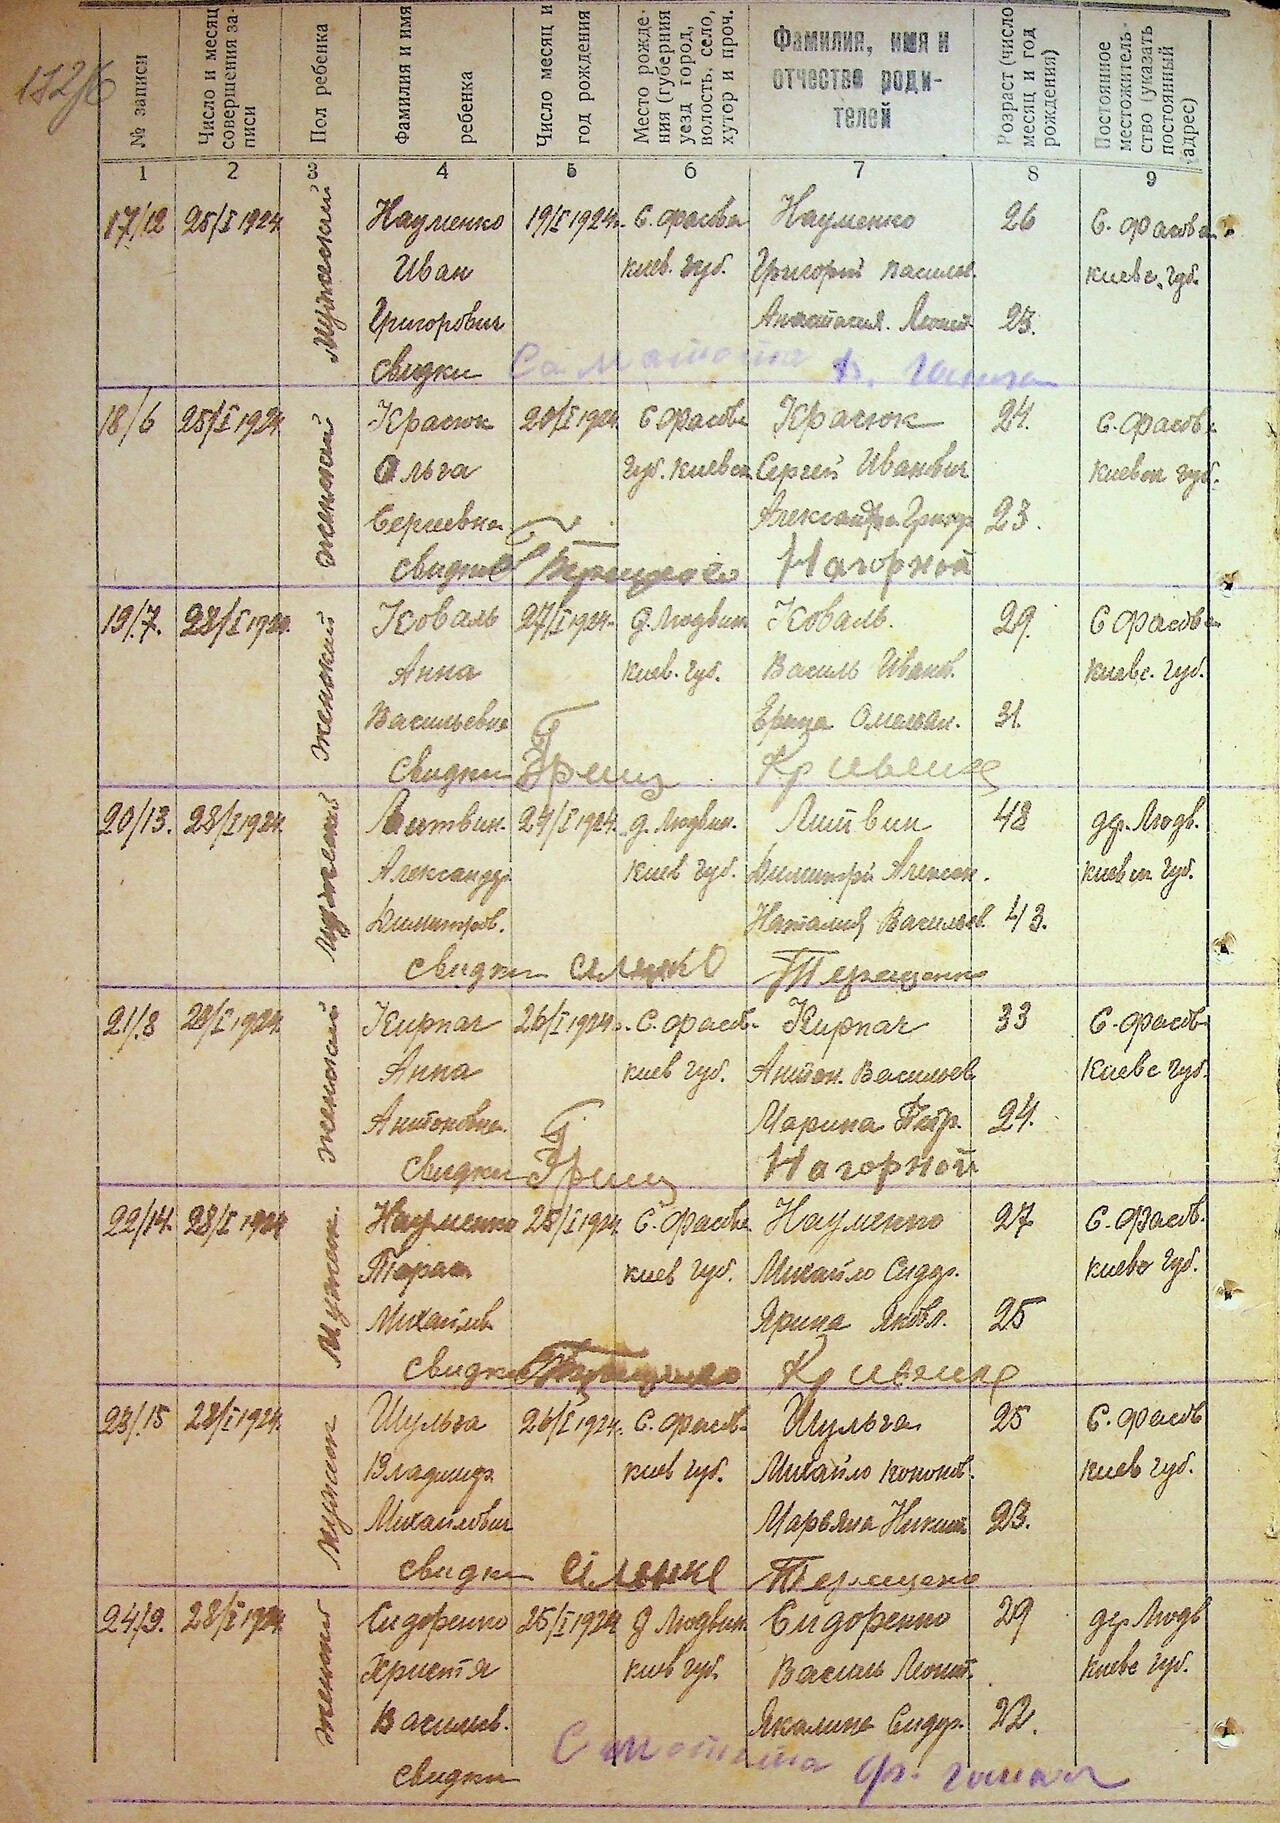 № записи
Число и месяц совершения записи
Пол ребенка
Фамилия и имя ребенка
Число месяц и год рождения
Место рождения (губерния уезд город, волость, село, хутор и проч.
Фамилия, имя и отчество родителей
Возраст (число месяц и год рождения)
Постоянное местожительство (указать постоянный адрес)
1 2 3 4 5 6 7 8 9
17/12 25/I 1924 Мужеский Науменко 19/I 1924. С. Фасова Науменко 26 С. Фасова
Иван киев. губ. Григорий Василов. киевс. губ.
Григорович Анастасия. 23.
свидки
18/6 25/I 1924 женский Красюк 20/I 1924 С Фасова Красюк 24. С. Фасов
Ольга губ. Киевск Сергей Иванович Киевск губ.
Сергиевна Александра Григор 23.
свидки Терещенко Нагорной
19/7. 28/I 1924. женский Коваль 27/I 1924. д. Людвин Коваль. 29. С Фасов
Анна киев. губ. Василь Иванов. Киевс. губ.
Васильевна Омельян. 31.
свидки Гриц Кривенке
20/13. 28/I 1924. Литвин. 24/I 1924. д. Людвин. Литвин 48 др. Людв.
Александр киев губ. Димитрй Алексан. киевск губ.
Димитров. Наталия Васильев. 43.
свидки Терещенко
21/8 29/I 1924. женский Кирпач 26/I 1924. С. Фасов. Кирпач 33 С. Фасов
Анна киев губ. Антон. Васильев Киевс губ.
Антоновна. Марина Петр. 24.
свидки Гриц Нагорной
22/14. 28/I 1924 Мужск. Науменко 25/I 1924. С. Фасова Науменко 27 С. Фасов.
Тарас киев губ. Михайло Сидор. киевс губ.
Михайлов Ярина Яковл. 25
свидки Терещенко Кривенке
23/15 28/I 1924. Шульга 26/I 1924. С. Фасов. Шульга 25 С. Фасов
Владимир киев губ. Михайло Кононов. киев губ.
Михайлович Марьяна Никит 23.
свидки Терещенко
24/9. 28/I 1924 Сидоренко 25/I 1924 д Людвин. Сидоренко 29 др Людв
Христя киев губ. Василь Киевс губ.
Васильев. Сидор. 22.
свидки